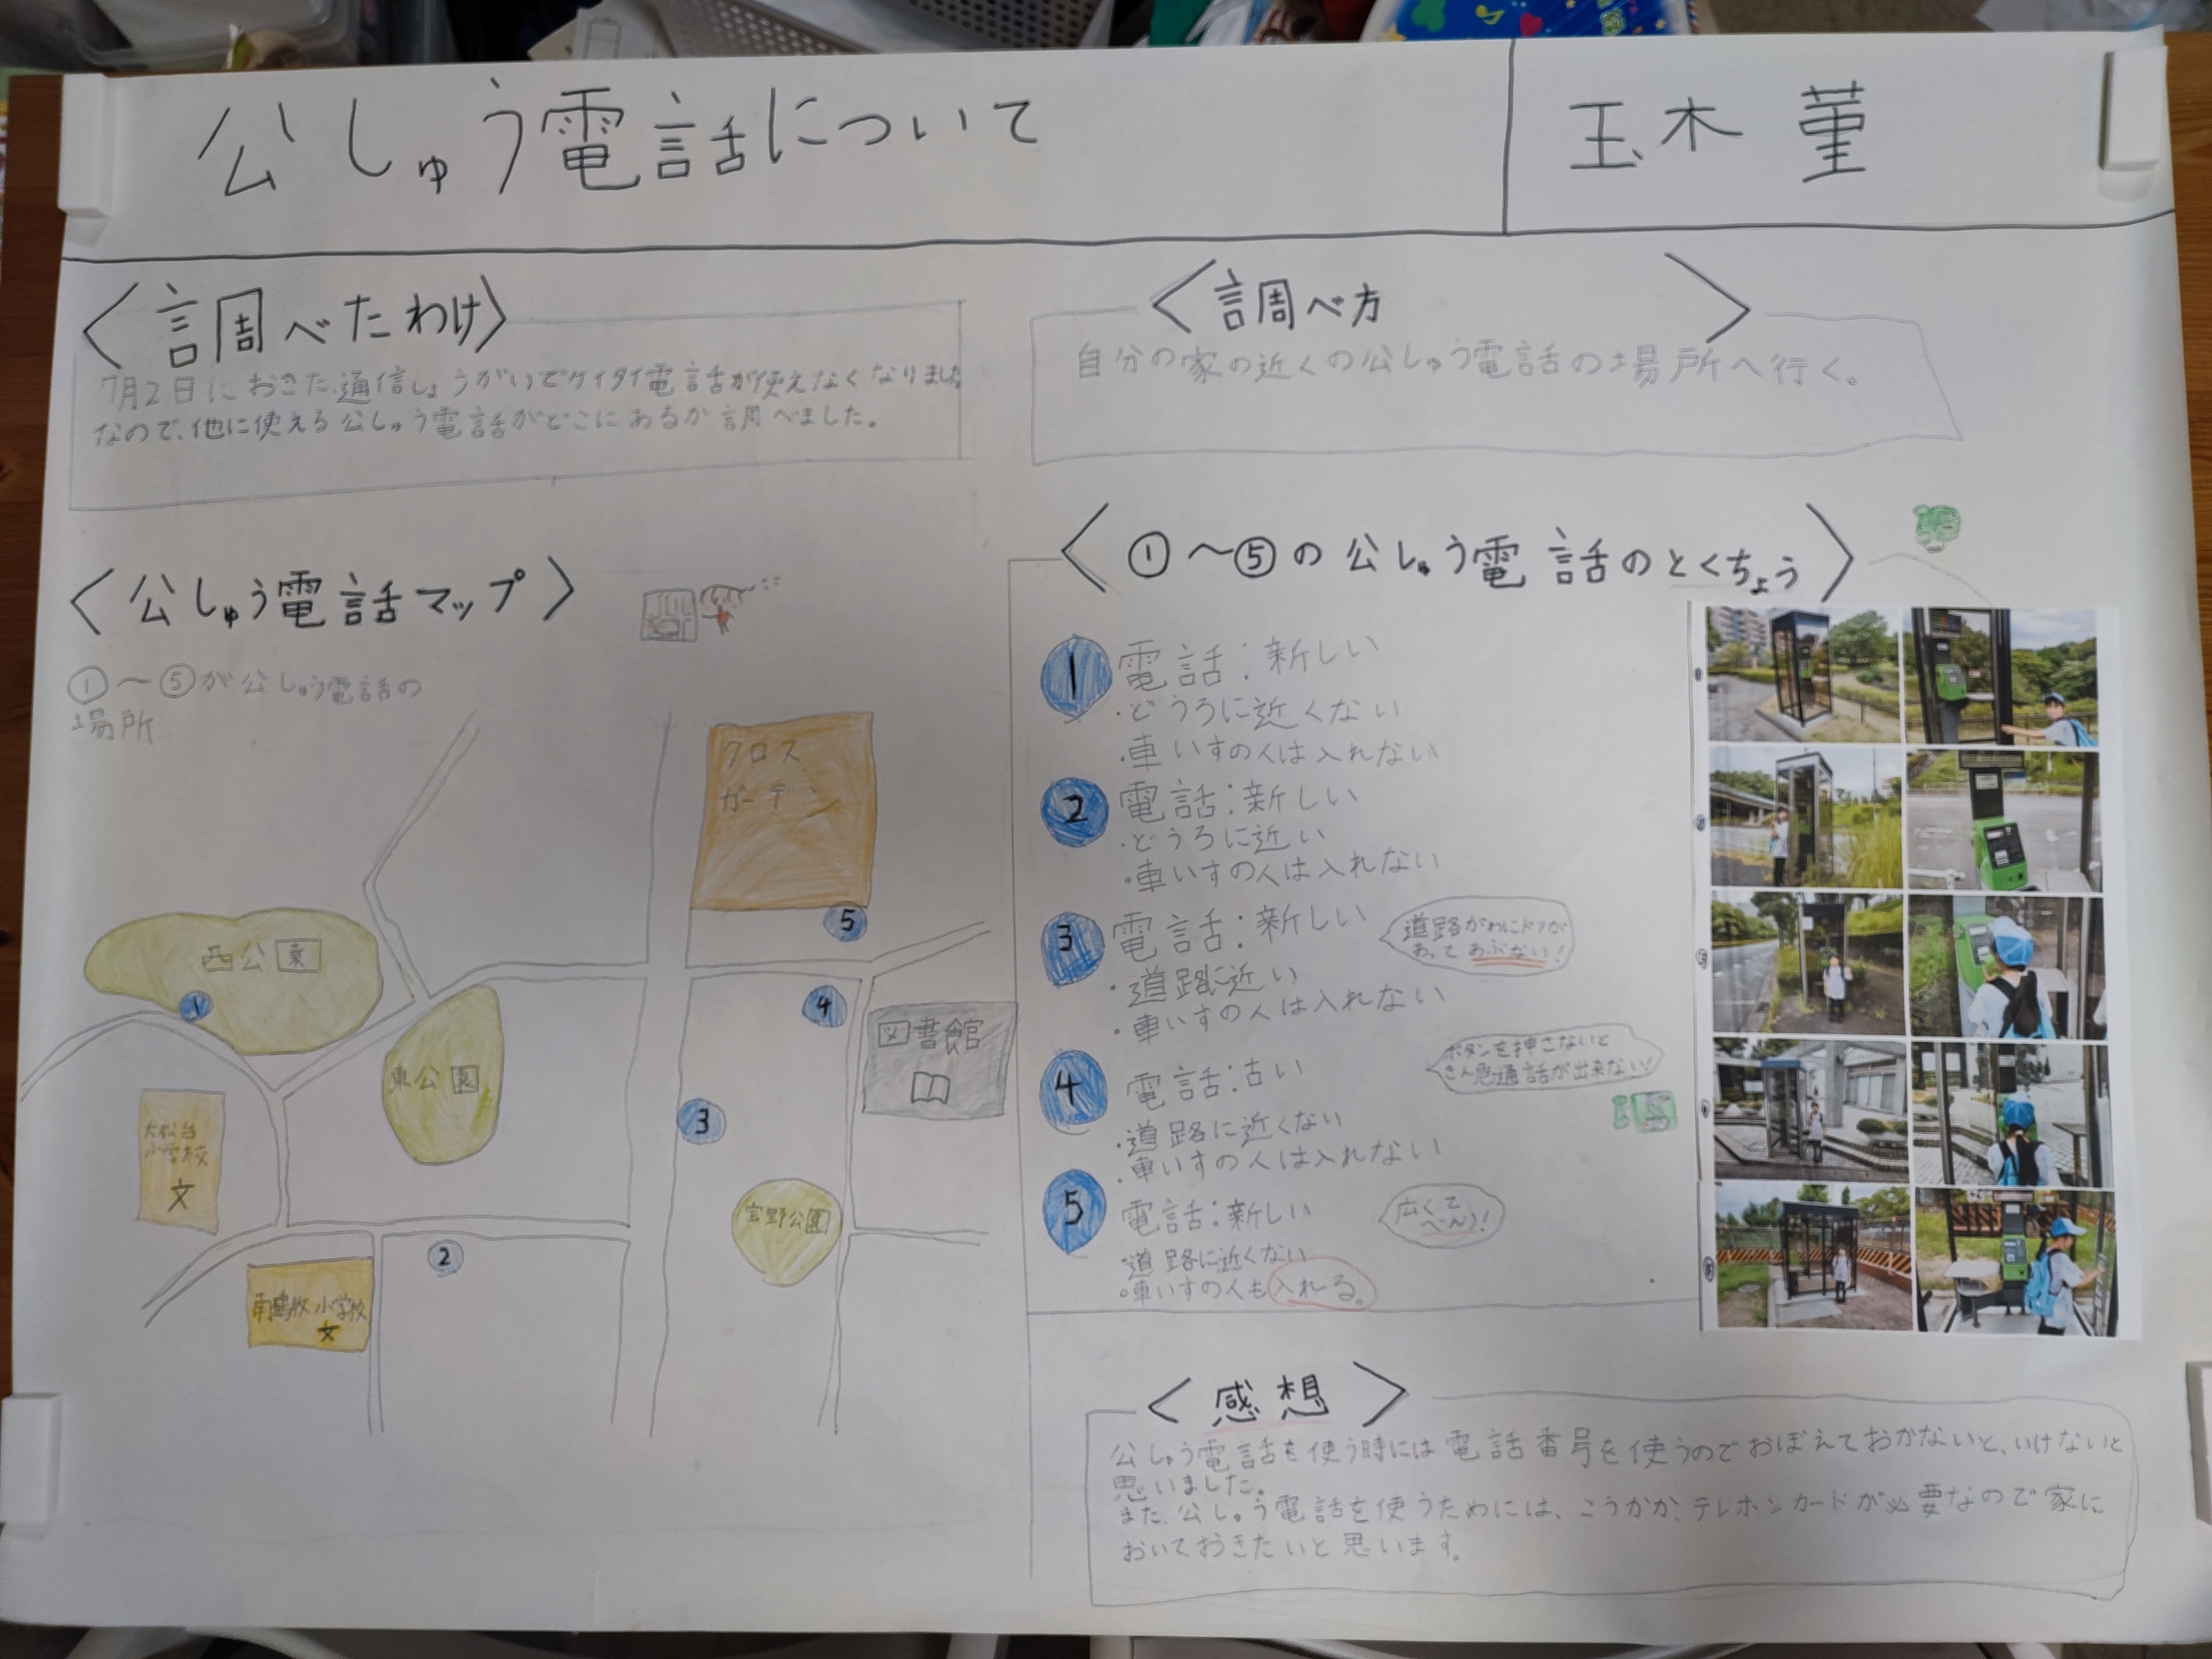 公しゅう電話について
玉木 菫
〈調べたわけ〉
7月2日におきた通信しょうがいでケイタイ電話が使えなくなりました
なので、他に使える公しゅう電話がどこにあるか調べました。
〈調べ方〉
自分の家の近くの公しゅう電話の場所へ行く。
〈公しゅう電話マップ〉
①～⑤が公しゅう電話の
場所
クロス
ガーデン
5
西公園
1
4
図書館
東公園
3
大松台
小学校
文
宮野公園
2
南鶴牧小学校
文
〈①～⑤の公しゅう電話のとくちょう〉
1 電話:新しい
・どうろに近くない
・車いすの人は入れない
2 電話:新しい
・どうろに近い
・車いすの人は入れない
3 電話:新しい
・道路に近い
・車いすの人は入れない
道路がわにドアが
あってあぶない!
4 電話:古い
・道路に近くない
・車いすの人は入れない
ボタンを押さないと
きん急通話が出来ない!
5 電話:新しい
・道路に近くない
・車いすの人も入れる。
広くて
べんり!
〈感想〉
公しゅう電話を使う時には電話番号を使うのでおぼえておかないと、いけないと
思いました。
また、公しゅう電話を使うためには、こうかか、テレホンカードが必要なので家に
おいておきたいと思います。